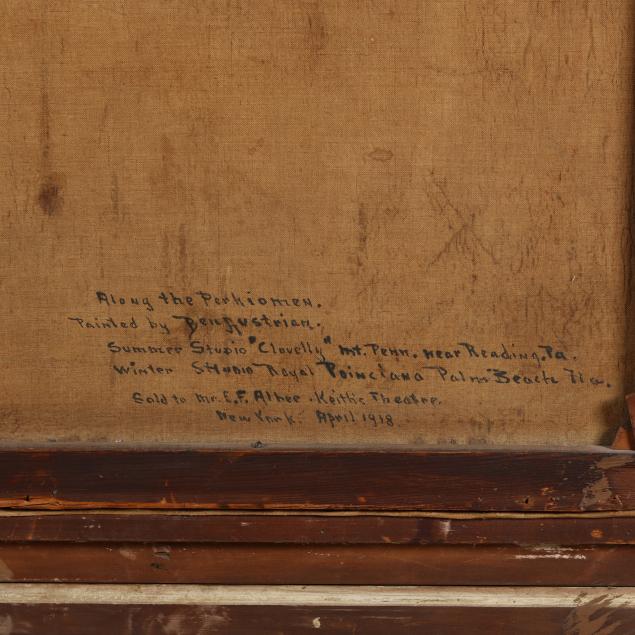 Along the Perkiomen.
Painted by Ben Austrian.
Summer Studio "Clovelly" mt. Penn. near Reading. Pa.
Winter Studio Royal Poinciana Palm Beach Fla.
Sold to mr. E.F. Albee. Keiths Theatre.
New York. April 1918